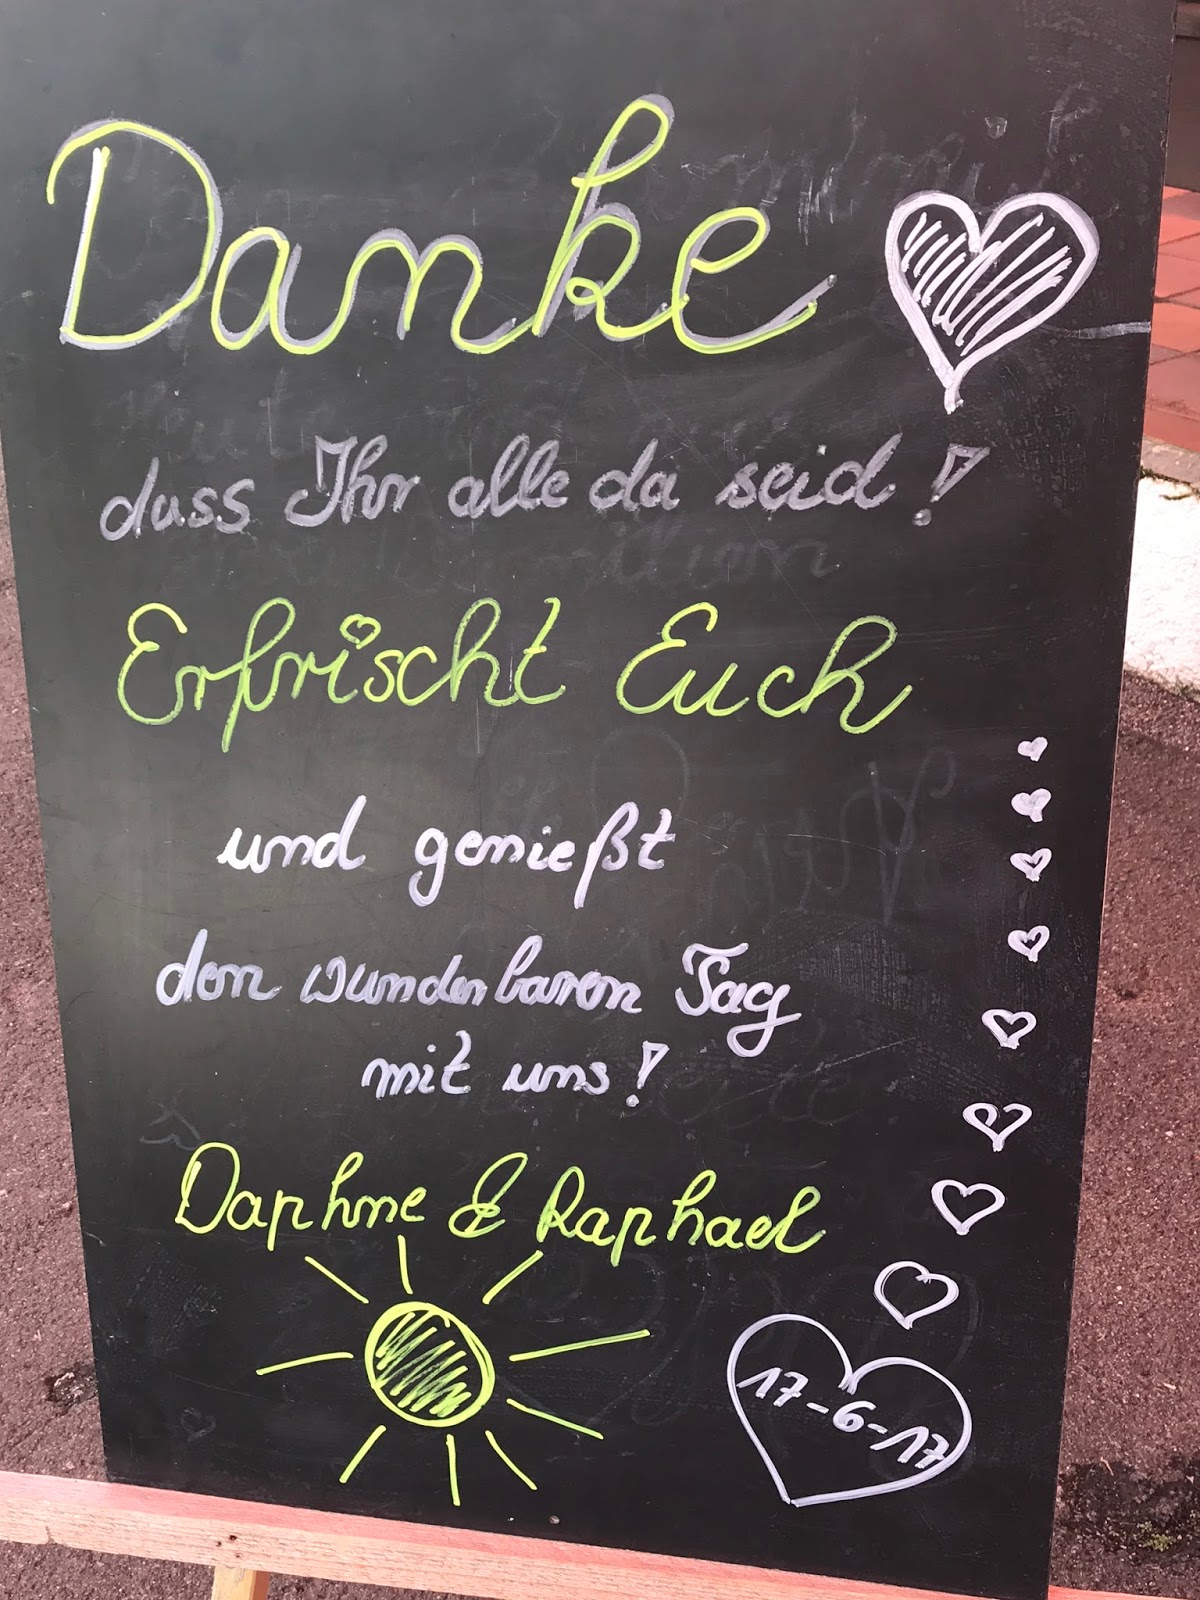 Danke
dass Ihr alle da seid!
Erfrischt Euch
und genießt
den wunderbaren Tag
mit uns!
Daphne & Raphael
17-6-17